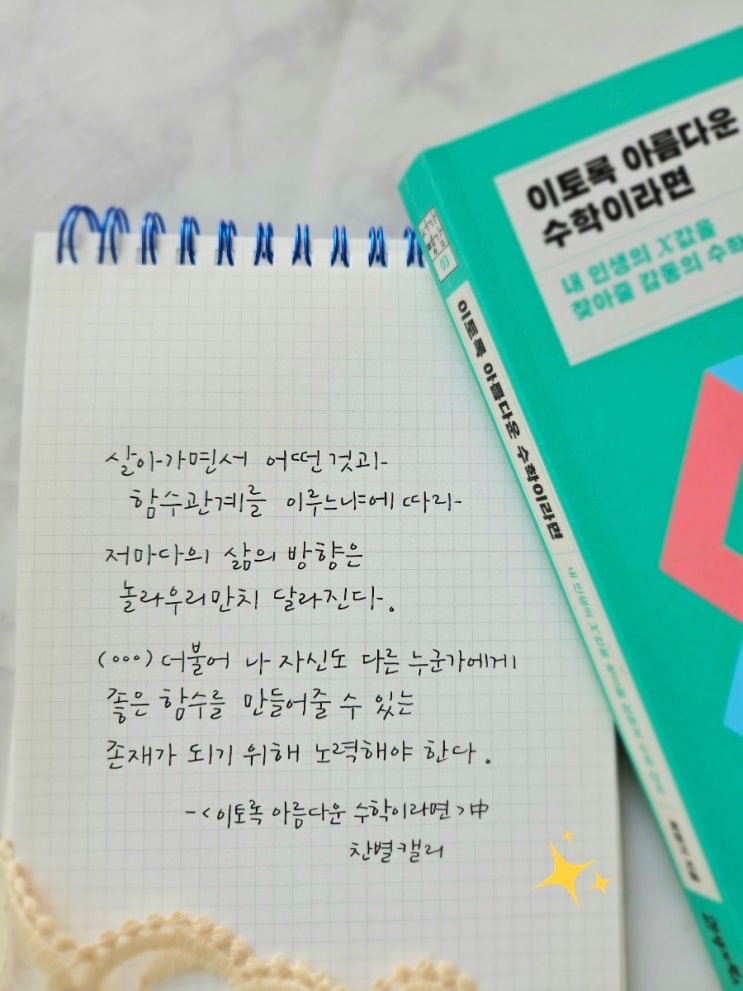 살아가면서 어떤 것과
함수관계를 이루느냐에 따라
저마다의 삶의 방향은
놀라우리만치 달라진다.
(…) 더불어 나 자신도 다른 누군가에게
좋은 함수를 만들어줄 수 있는
존재가 되기 위해 노력해야 한다.
-<이토록 아름다운 수학이라면>中
찬별캘리
이토록 아름다운
수학이라면
내 인생의 X값을
찾아줄 감동의 수학
서가
명강
03
이토록 아름다운 수학이라면
내 인생의 X값을 찾아줄 감동의 수학